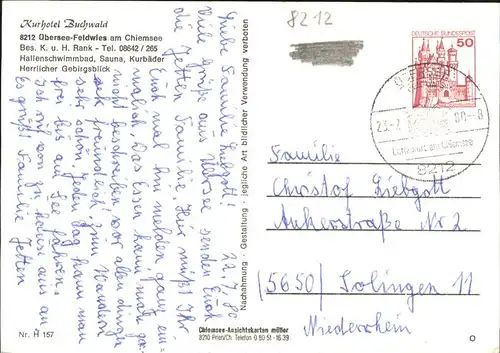 Kurhotel Buchwald
8212 Übersee-Feldwies am Chiemsee
Bes. K. u. H. Rank - Tel. 08642 / 265
Hallenschwimmbad, Sauna, Kurbäder
Herrlicher Gebirgsblick
8212
DEUTSCHE BUNDESPOST
50
Luftkurort am Chiemsee
8212
22.7.80
Liebe Familie Liebgott!
Viele Grüße aus Übersee senden Euch
die Jetten Familie. Hier müßt Ihr
Euch mal anmelden ganz ein-
malig. Das Essen kann man gar
nicht beschreiben vor allen dingen
sehr freundlich! Zum Wandern
sehr schön, jeden Tag kann man
frei bis auf See fahren.
Ich ruf von zu hause aus an
Es grüßt Familie Jetten
Nachahmung - Gestaltung - jegliche Art bildlicher Verwendung verboten
Familie
Christof Liebgott
Ankerstraße Nr 2
(5650) Solingen 11
Niederrhein
Nr. H 157
Chiemsee-Ansichtskarten müller
8210 Prien/Ch. Telefon 0 80 51 - 16 39